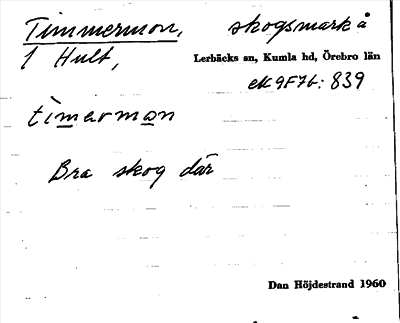 Timmermon, skogsmark å
1 Hult,
Lerbäcks sn, Kumla hd, Örebro län
ek 9F7b: 839
timərmon
Bra skog där
Dan Höjdestrand 1960